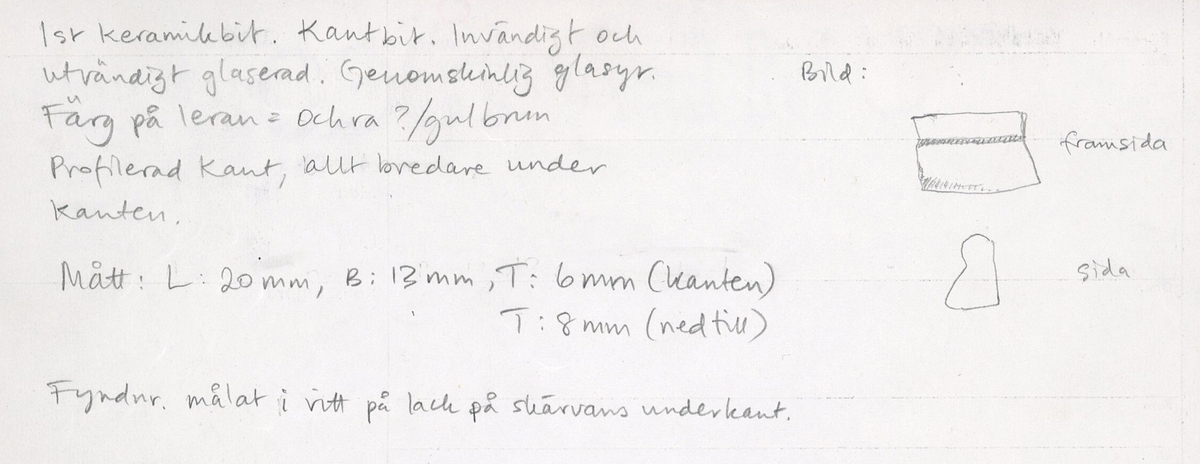 1st keramikbit. Kantbit. Invändigt och
utvändigt glaserad. Genomskinlig glasyr.
Färg på leran = Ochra ?/gulbrun
Profilerad kant, allt bredare under
kanten.
Mått: L: 20 mm, B: 13 mm, T: 6 mm (kanten)
T: 8 mm (nedtill)
Fyndnr. målat i vitt på lack på skärvans underkant.
Bild:
framsida
sida